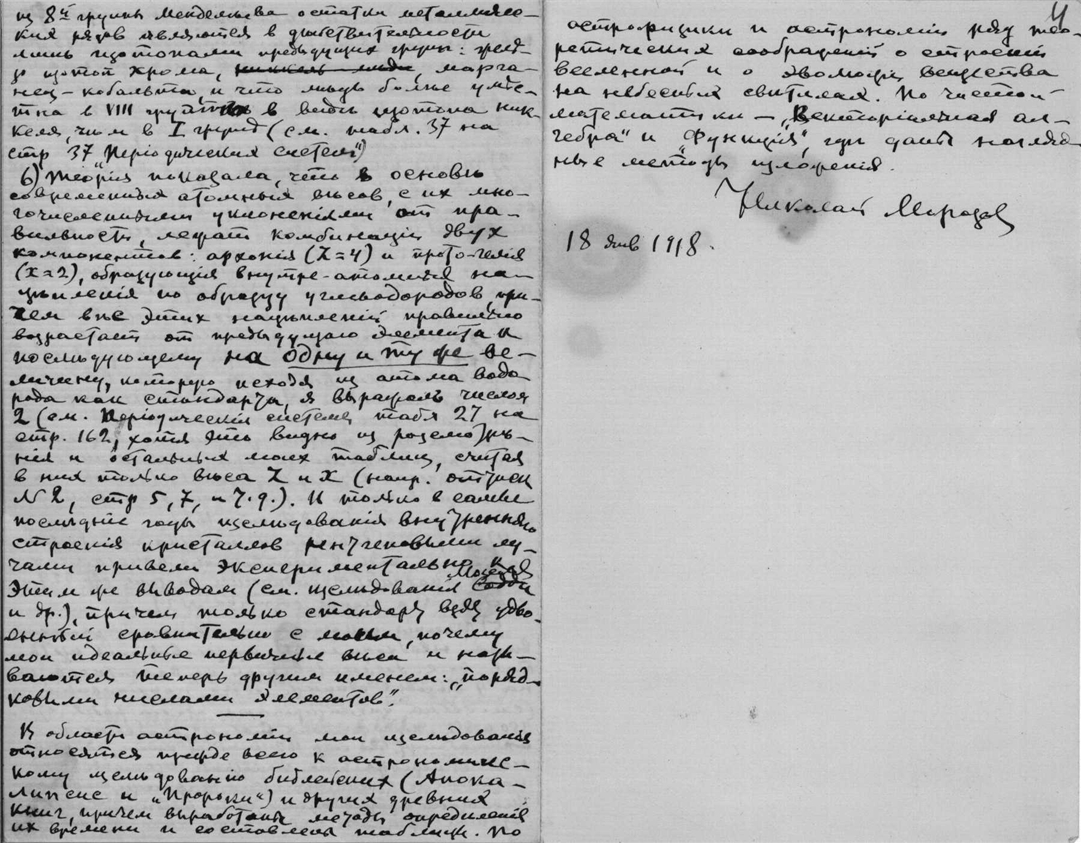 из 8й группы Менделѣева остатки металличес-
ких рядов являются в дѣйствительности
лишь изотопами предыдущих групп: желѣ-
зо изотоп хрома, марга-
нец - кобальта и что мѣдь болѣе умѣст-
на в VIII группѣ в видѣ изотопа ник-
келя, чѣм в I групѣ (см. табл. 37 на
стр 37 „Періодическия системы")
6) Теорія показала, что в основѣ
современных атомных вѣсов, с их мно-
гочисленными уклоненіями от пра-
вильности, лежат комбинаціи двух
компонентов: архонія (Z=4) и протогелія
(x=2), образующія внутри-атомныя на-
цѣпленія по образцу углеводородов, при-
чем вѣс этих нацѣпленій правильно
возрастает от предыдущаго элемента к
послѣдующему на одну и ту же ве-
личину, которую исходя из атома водо-
рода как стандарта, я выражаю числом
2 (см. Періодическія системы табл 27 на
стр. 162, хотя это видно из разсмотрѣ-
нія и остальных моих таблиц, считая
в них только вѣса Z и X (напр. оттиск
№ 2, стр 5, 7, и т. д.). И только в самые
послѣдніе годы изслѣдованія внутренняго
строенія кристаллов рентгеновыми лу-
чами привели экспериментально к
этим же выводам (см. изслѣдованія Мозелея
и др.), причем только стандарт взят удво-
енный сравнительно с моим, почему
мои идеальные первичные вѣса и назы-
ваются теперь другим именем: „поряд-
ковыми числами элементов".
В области астрономіи мои изслѣдованія
относятся прежде всего к астрономичес-
кому изслѣдованію библейских (Апока-
липсис и „Пророки") и других древних
книг, причем выработаны методы опредѣленія
их времени и составлены таблицы. По
4
астрофизики и астрономіи ряд тео-
ретических соображений о строеніи
вселенной и о эволюціи вещества
на небесных свѣтилах. По чистой
математики - „Векторіальная ал-
гебра" и „Функція", гдѣ даны нагляд-
ные методы изложенія.
Николай Морозов
18 янв 1918.